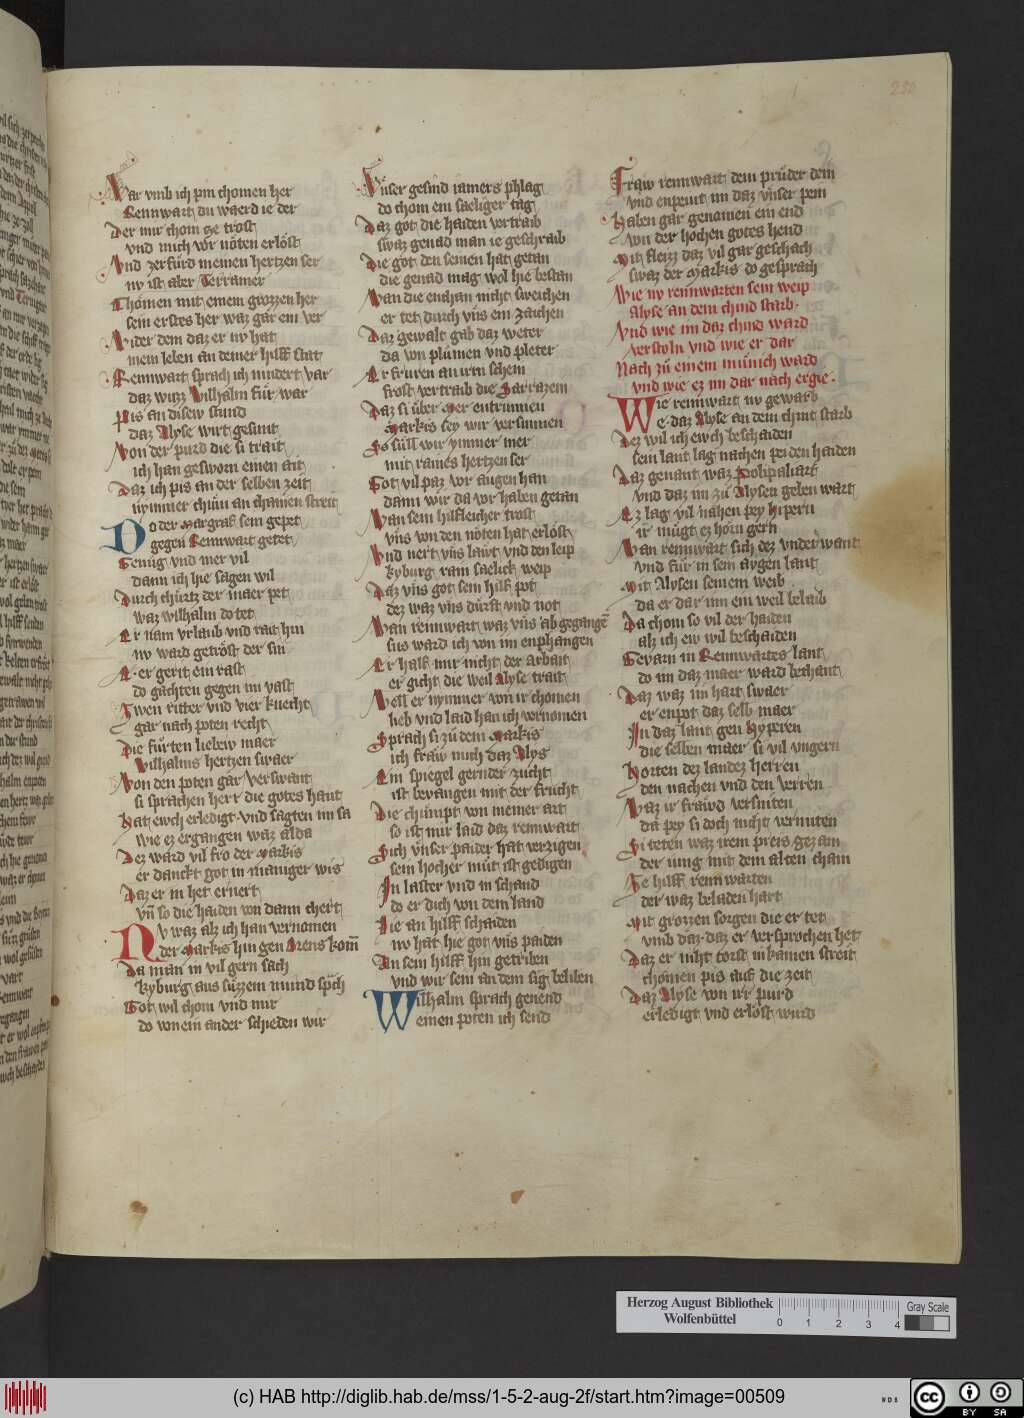 250
War vmb ich pin chomen her
Rennwart du waerd ie der
Der mir chom ze trost
vnd mich von nöten erlöst
Vnd zerfürd meinen hertzen ser
nv ist aber Terramer
Chomen mit einem grozzen her
sein erstes her waz gar ein ver
Wider dem daz er nv hat
mein leben an deiner hilff stat
Rennwart sprach ich nindert var
daz wizz Wilhalm für war
Pis an disew stund
daz Alyse wirt gesunt
Von der purd die si trait
ich han gesworn einen ait
Daz ich pis an der selben zeit
nymmer chüm an chainen streit
Do der Margraf sein gepet
gegen Rennwart getet
Genug vnd mer vil
dann ich hie sagen wil
Durch chürtz der maer pet
waz wilhalm do tet
Er nam vrlaub vnd rait hin
nv ward getröst der sin
E er gerit ein rast
do gachten gegen im vast
Zwen ritter vnd vier knecht
gar nach poten recht
Die fürten liebew maer
Wilhalms hertzen swaer
Von den poten gar verswant
si sprachen herr die gotes hant
Hat ewch erledigt vnd sagten im sa
wie ez ergangen waz alda
Dez ward vil fro der Markis
er danckt got in maniger wis
Daz er in het ernert
vn̄ so die haiden von dann chert
Nv waz alz ich han vernomen
der Markis hin gen Orens kom̄
Da man in vil gern sach
Kyburg aus süzzem mund sp̄ch
Got wil chom vnd mir
do von ein ander schieden wir
Vnser gesind iamers phlag
do chom ein saeliger tag
Daz got die haiden vertraib
swaz genad man ie geschraib
Die got den seinen hat getan
die genad mag wol hie bestan
Wan die enchan nicht sweichen
er tet durch vns ein zaichen
Daz gewalt gab daz weter
da von plümen vnd pleter
Er fruren an irm schein
frost vertraib die Sarrazein
Daz si über Mer entrunnen
Markis sey wir versunnen
Es süll wir ymmer mer
mit raines hertzen ser
Got vil paz vor augen han
dann wir da vor haben getan
Wan sein hilfleicher trost
vns von den nöten hat erlöst
Vnd nert vns lawt vnd den leip
kyburg ram saelick weip
Daz vns got sein hilf pot
dez waz vns dürft vnd not
Wan rennwart waz vns ab gegangē
sus ward ich von im enphangen
Er half mir nicht der arbait
er gicht die weil Alyse trait
Well er nymmer von ir chomen
lieb vnd laid han ich vernomen
Sprach si zü dem Markis
ich fraw mich daz Alys
Ein spiegel gernder zücht
ist bevangen mit der frücht
Die chümpt von meiner art
so ist mir laid daz rennwart
Sich vnser paider hat verzigen
sein hocher müt ist gedigen
In laster vnd in schand
do er dich von dem land
Lie an hilff schaiden
nv hat hie got vns paiden
An sein hilff hin getriben
vnd wir sein an dem sig beliben
Wilhalm sprach genend
einen poten ich send
Fraw rennwart dem prüder dein
vnd enpeut im daz vnser pein
Haben gar genomen ein end
von der hochen gotes hend
Mit fleizz daz vil gar geschach
swaz der Markis do gesprach
Wie nv rennwarten sein weip
Alyse an dem chind starb
Vnd wie im daz chind ward
verstoln vnd wie er dar
Nach zü einem münich ward
vnd wie ez im dar nach ergie
Wie rennwart nv gewarb
E daz Alyse an dem chint starb
Dez wil ich ewch beschaiden
sein lant lag nachen pei den haiden
Daz genant waz Pohpaliart
vnd daz im zü Alysen geben wart
Ez lag vil nahen pey hipern
ir mügt ez hörn gern
Wan rennwart sich dez vnder want
vnd für in sein aygen lant
Mit Alysen seinem weib
da er dar inn ein weil belaib
Da chom so vil der haiden
alz ich ew wil beschaiden
Gevarn in Rennwartes lant
do im daz maer ward bechant
Daz waz im hart swaer
er enpot daz selb maer
In daz lant gen Hyperen
die selben maer si vil vngern
Horten dez landez herren
den nachen vnd den verren
Waz ir frawd versniten
da pey si doch nicht vermiten
Si teten waz irem preis gezam
der iung mit dem alten cham
Ze hilff rennwarten
der waz beladen hart
Mit grozzen sorgen die er tet
vmb daz daz er versprochen het
Daz er niht torst in kainen streit
chomen pis auf die zeit
Daz Alyse von irr purd
erledigt vnd erlöst wurd
Herzog August Bibliothek
Wolfenbüttel
0 1 2 3 4
Gray Scale
(c) HAB http://diglib.hab.de/mss/1-5-2-aug-2f/start.htm?image=00509
cc BY SA